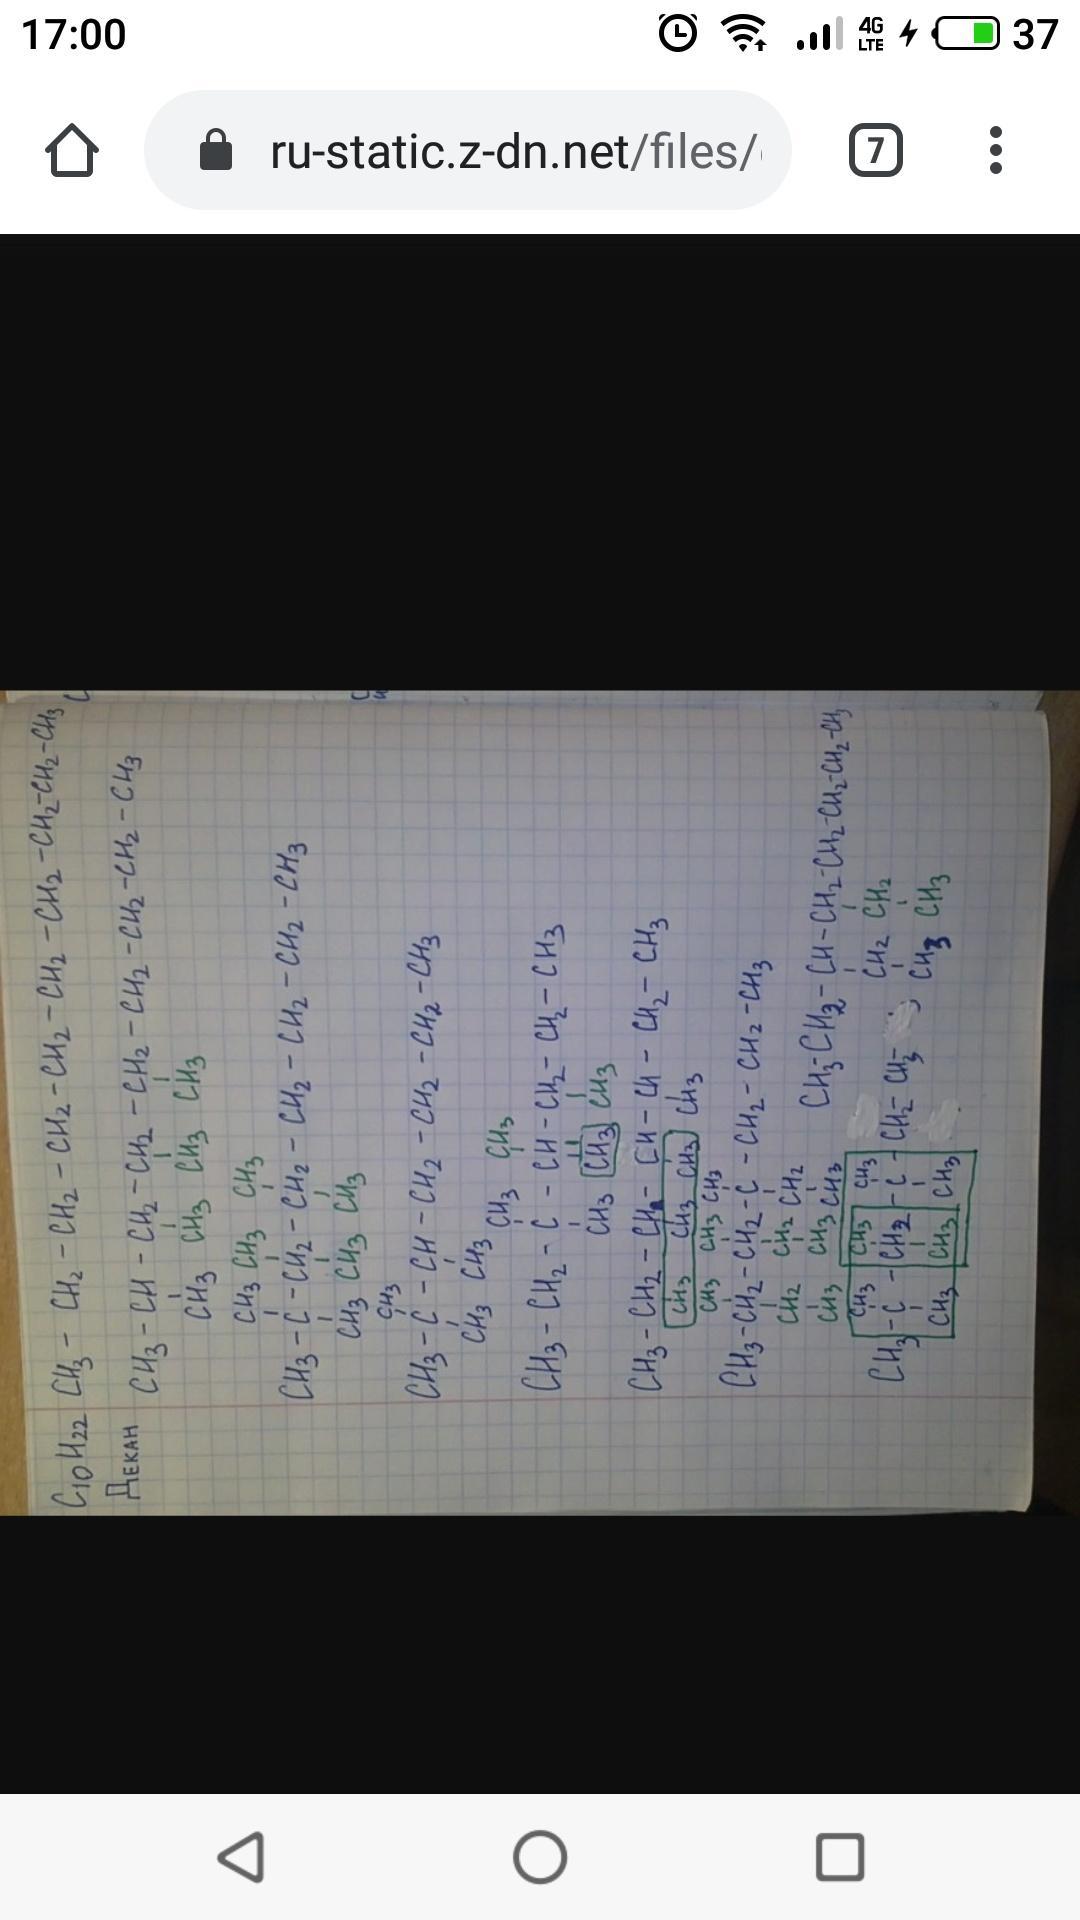 17:00
4G
LTE
37
ru-static.z-dn.net/files/
7
C10H22 CH3 - CH2 - CH2 - CH2 - CH2 - CH2 - CH2 - CH2-CH2-CH3
Декан CH3 - CH - CH2 - CH2 - CH2 - CH2 - CH2 - CH2 - CH3
CH3 CH3 CH3 CH3
CH3 CH3 CH3
CH3 - C - CH2 - CH2 - CH2 - CH2 - CH2 - CH3
CH3 CH3 CH3
CH3
CH3 - C - CH - CH2 - CH2 - CH2 - CH3
CH3 CH3 CH3 CH3
CH3 - CH2 - C - CH - CH2 - CH2 - CH3
CH3 CH3 CH3
CH3 - CH2 - CH - CH - CH - CH2 - CH3
CH3 CH3 CH3 CH3
CH3 CH3 CH3
CH3-CH2-CH2-C - CH2 - CH2 - CH3
CH2 CH2 CH2
CH3 CH3 CH3
CH3-CH2 - CH-CH2-CH2-CH2-CH2-CH3
CH2 CH2
CH3 CH3
CH3 CH3 CH3
CH3 - C - CH2 - C - CH2 - CH3
CH3 CH3 CH3